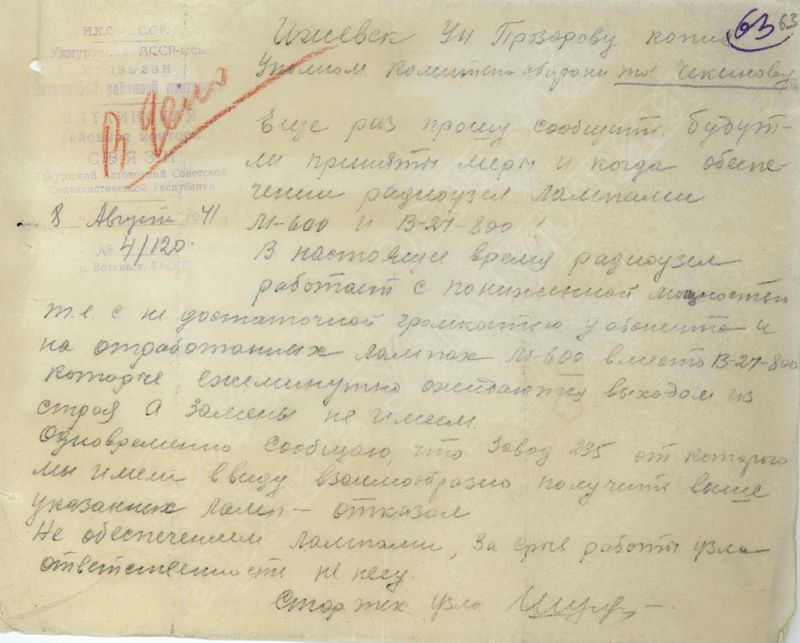 63 63
Н.К.С. С.С.С.Р.
Удмуртской АССР
районной конторы
СВЯЗИ
Удмуртской Автономной Советской
Социалистической Республики
8 Август 1941
№ 4/120.
г. Воткинск, УАССР
В дело
Ижевск Ун Прозорову копия
Уполном. Комитета обороны тл Чекинову
Еще раз прошу сообщить, будут-
ли приняты меры и когда обеспе
чении радиоузел лампами
М-600 и В-27-800!
В настоящее время радиоузел
работает с пониженной мощностью
т.е. с не достаточной громкостью у абонента и
на отработанных лампах М-600 вместо В-27-800
которые, ежеминутно ожидаются выходом из
строя А замены не имеем.
Одновременно сообщаю, что Завод 235 от которого
мы имели ввиду взаимообразно получить выше
указанных ламп - отказал
Не обеспечением лампами, за срыв работы узла
ответственности не несу.
Стар тех узла